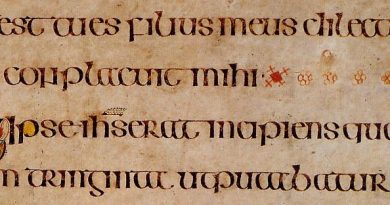 est tues filius meus dilect
conplacuit mihi
Ipse ihs erat incipiens qua
tringinta utputabatur